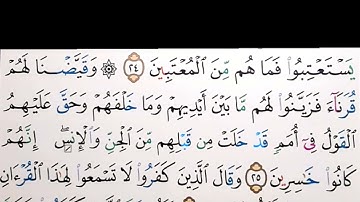 يَسْتَعْتِبُوا۟ فَمَا هُم مِّنَ ٱلْمُعْتَبِينَ ٢٤ ۞ وَقَيَّضْنَا لَهُمْ
قُرَنَآءَ فَزَيَّنُوا۟ لَهُم مَّا بَيْنَ أَيْدِيهِمْ وَمَا خَلْفَهُمْ وَحَقَّ عَلَيْهِمُ
ٱلْقَوْلُ فِىٓ أُمَمٍ قَدْ خَلَتْ مِن قَبْلِهِم مِّنَ ٱلْجِنِّ وَٱلْإِنسِ ۖ إِنَّهُمْ
كَانُوا۟ خَٰسِرِينَ ٢٥ وَقَالَ ٱلَّذِينَ كَفَرُوا۟ لَا تَسْمَعُوا۟ لِهَٰذَا ٱلْقُرْءَانِ